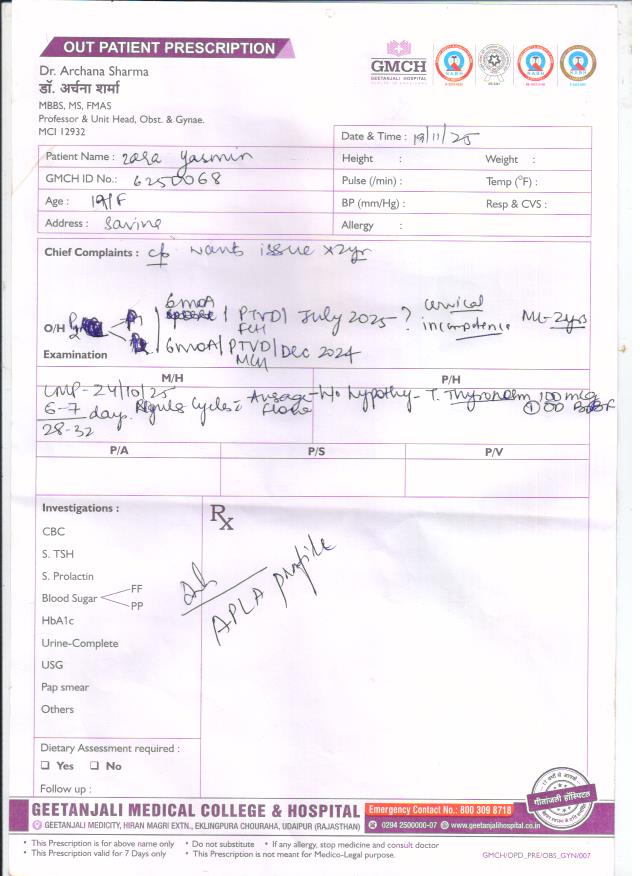 OUT PATIENT PRESCRIPTION
GMCH
GEETANJALI HOSPITAL
Dr. Archana Sharma
डॉ. अर्चना शर्मा
MBBS, MS, FMAS
Professor & Unit Head, Obst. & Gynae.
MCI 12932
Date & Time : 19/11/25
Patient Name : Zara Yasmin
Height :
Weight :
GMCH ID No.: 6250068
Pulse (/min) :
Temp (°F) :
Age : 19/F
BP (mm/Hg) :
Resp & CVS :
Address : Savina
Allergy :
Chief Complaints : c/o want issue x 2yr
O/H
6 moA | PTVD | July 2025 - ? cervical incompetence ML - 2yrs
FCH
6 moA | PTVD | Dec 2024
MCH
Examination
M/H
P/H
LMP - 24/10/25
6-7 days Regular cycles Average flow
28-32
H/o hypothy - T. Thyronorm 100 mcg
OD BBF
P/A
P/S
P/V
Investigations :
Rx
CBC
S. TSH
S. Prolactin
Blood Sugar
FF
PP
HbA1c
Urine-Complete
USG
Pap smear
Others
Adv
APLA profile
Dietary Assessment required :
Yes No
Follow up :
GEETANJALI MEDICAL COLLEGE & HOSPITAL
Emergency Contact No.: 800 309 8718
GEETANJALI MEDICITY, HIRAN MAGRI EXTN., EKLINGPURA CHOURAHA, UDAIPUR (RAJASTHAN)
0294 2500000-07 www.geetanjalihospital.co.in
गीतांजली हॉस्पिटल
• This Prescription is for above name only • Do not substitute • If any allergy, stop medicine and consult doctor
• This Prescription valid for 7 Days only • This Prescription is not meant for Medico-Legal purpose.
GMCH/OPD_PRE/OBS_GYN/007